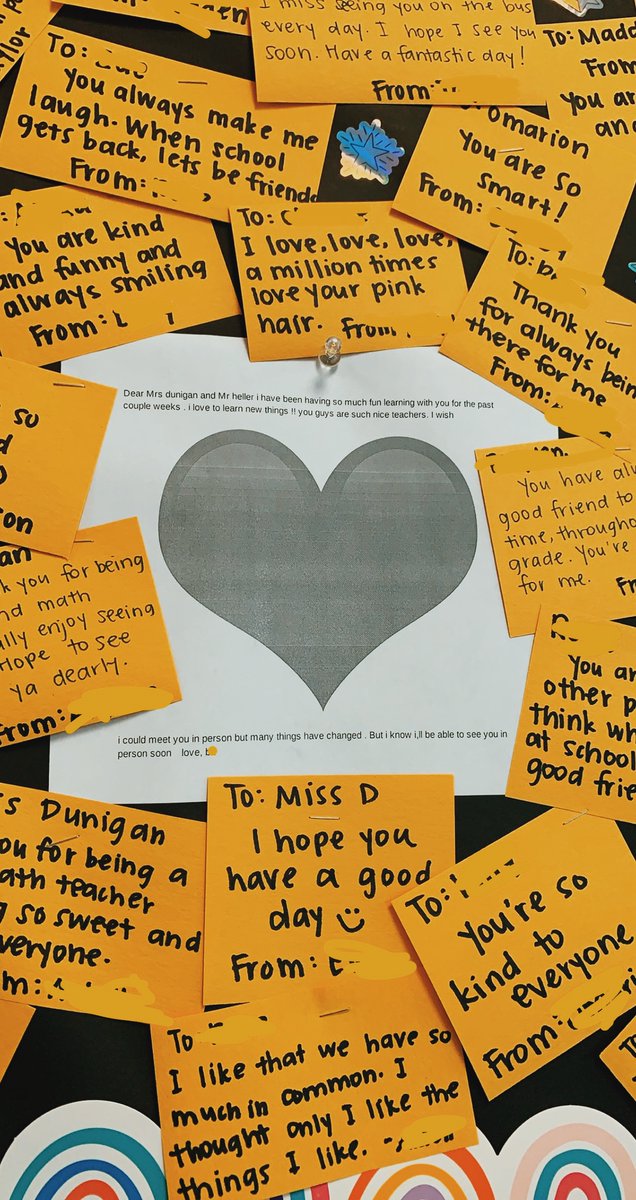 I miss seeing you on the bus
every day. I hope I see you
soon. Have a fantastic day!
From:
To:
You always make me
laugh. When school
gets back, lets be friends
From:
To: Madd
From
You are
an
omarion
You are so
smart!
From:
You are kind
and funny and
always smiling
From:
To: C
I love, love, love,
a million times
love your pink
hair. From
To:
Thank you
for always bein
there for me
From:
Dear Mrs dunigan and Mr heller i have been having so much fun learning with you for the past
couple weeks . i love to learn new things !! you guys are such nice teachers. I wish
i could meet you in person but many things have changed . But i know i,ll be able to see you in
person soon love, b
so
on
an
k you for being
nd math
lly enjoy seeing
Hope to see
ya dearly.
From:
You have alw
good friend to
time, througho
grade. You're
for me.
You ar
other p
think wh
at school
good frie
s Dunigan
ou for being a
ath teacher
g so sweet and
veryone.
m:
To: Miss D
I hope you
have a good
day
From:
To:
You're so
kind to
everyone
From:
To
I like that we have so
much in common. I
thought only I like the
things I like.